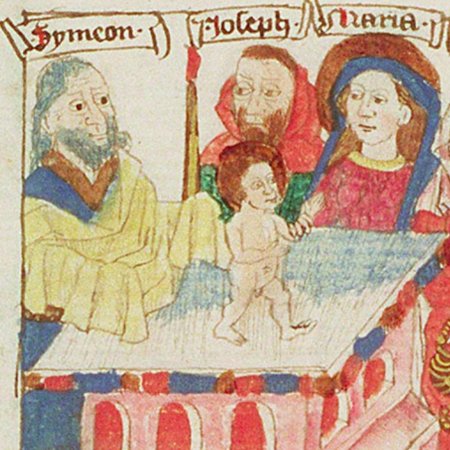 Symeon.
Joseph.
Maria.